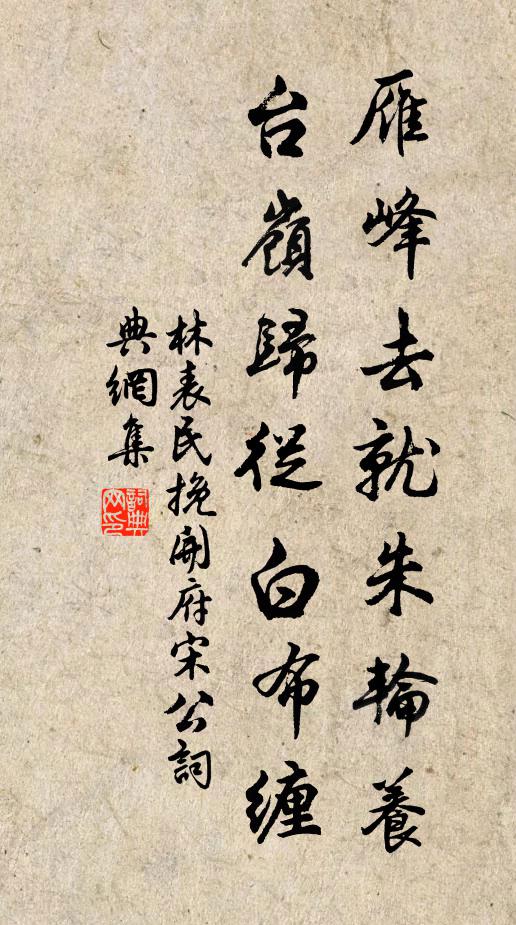 雁峰去就朱輪養
台嶺歸從白布纏
林表民挽開府宋公詞
典網集
詞典網印